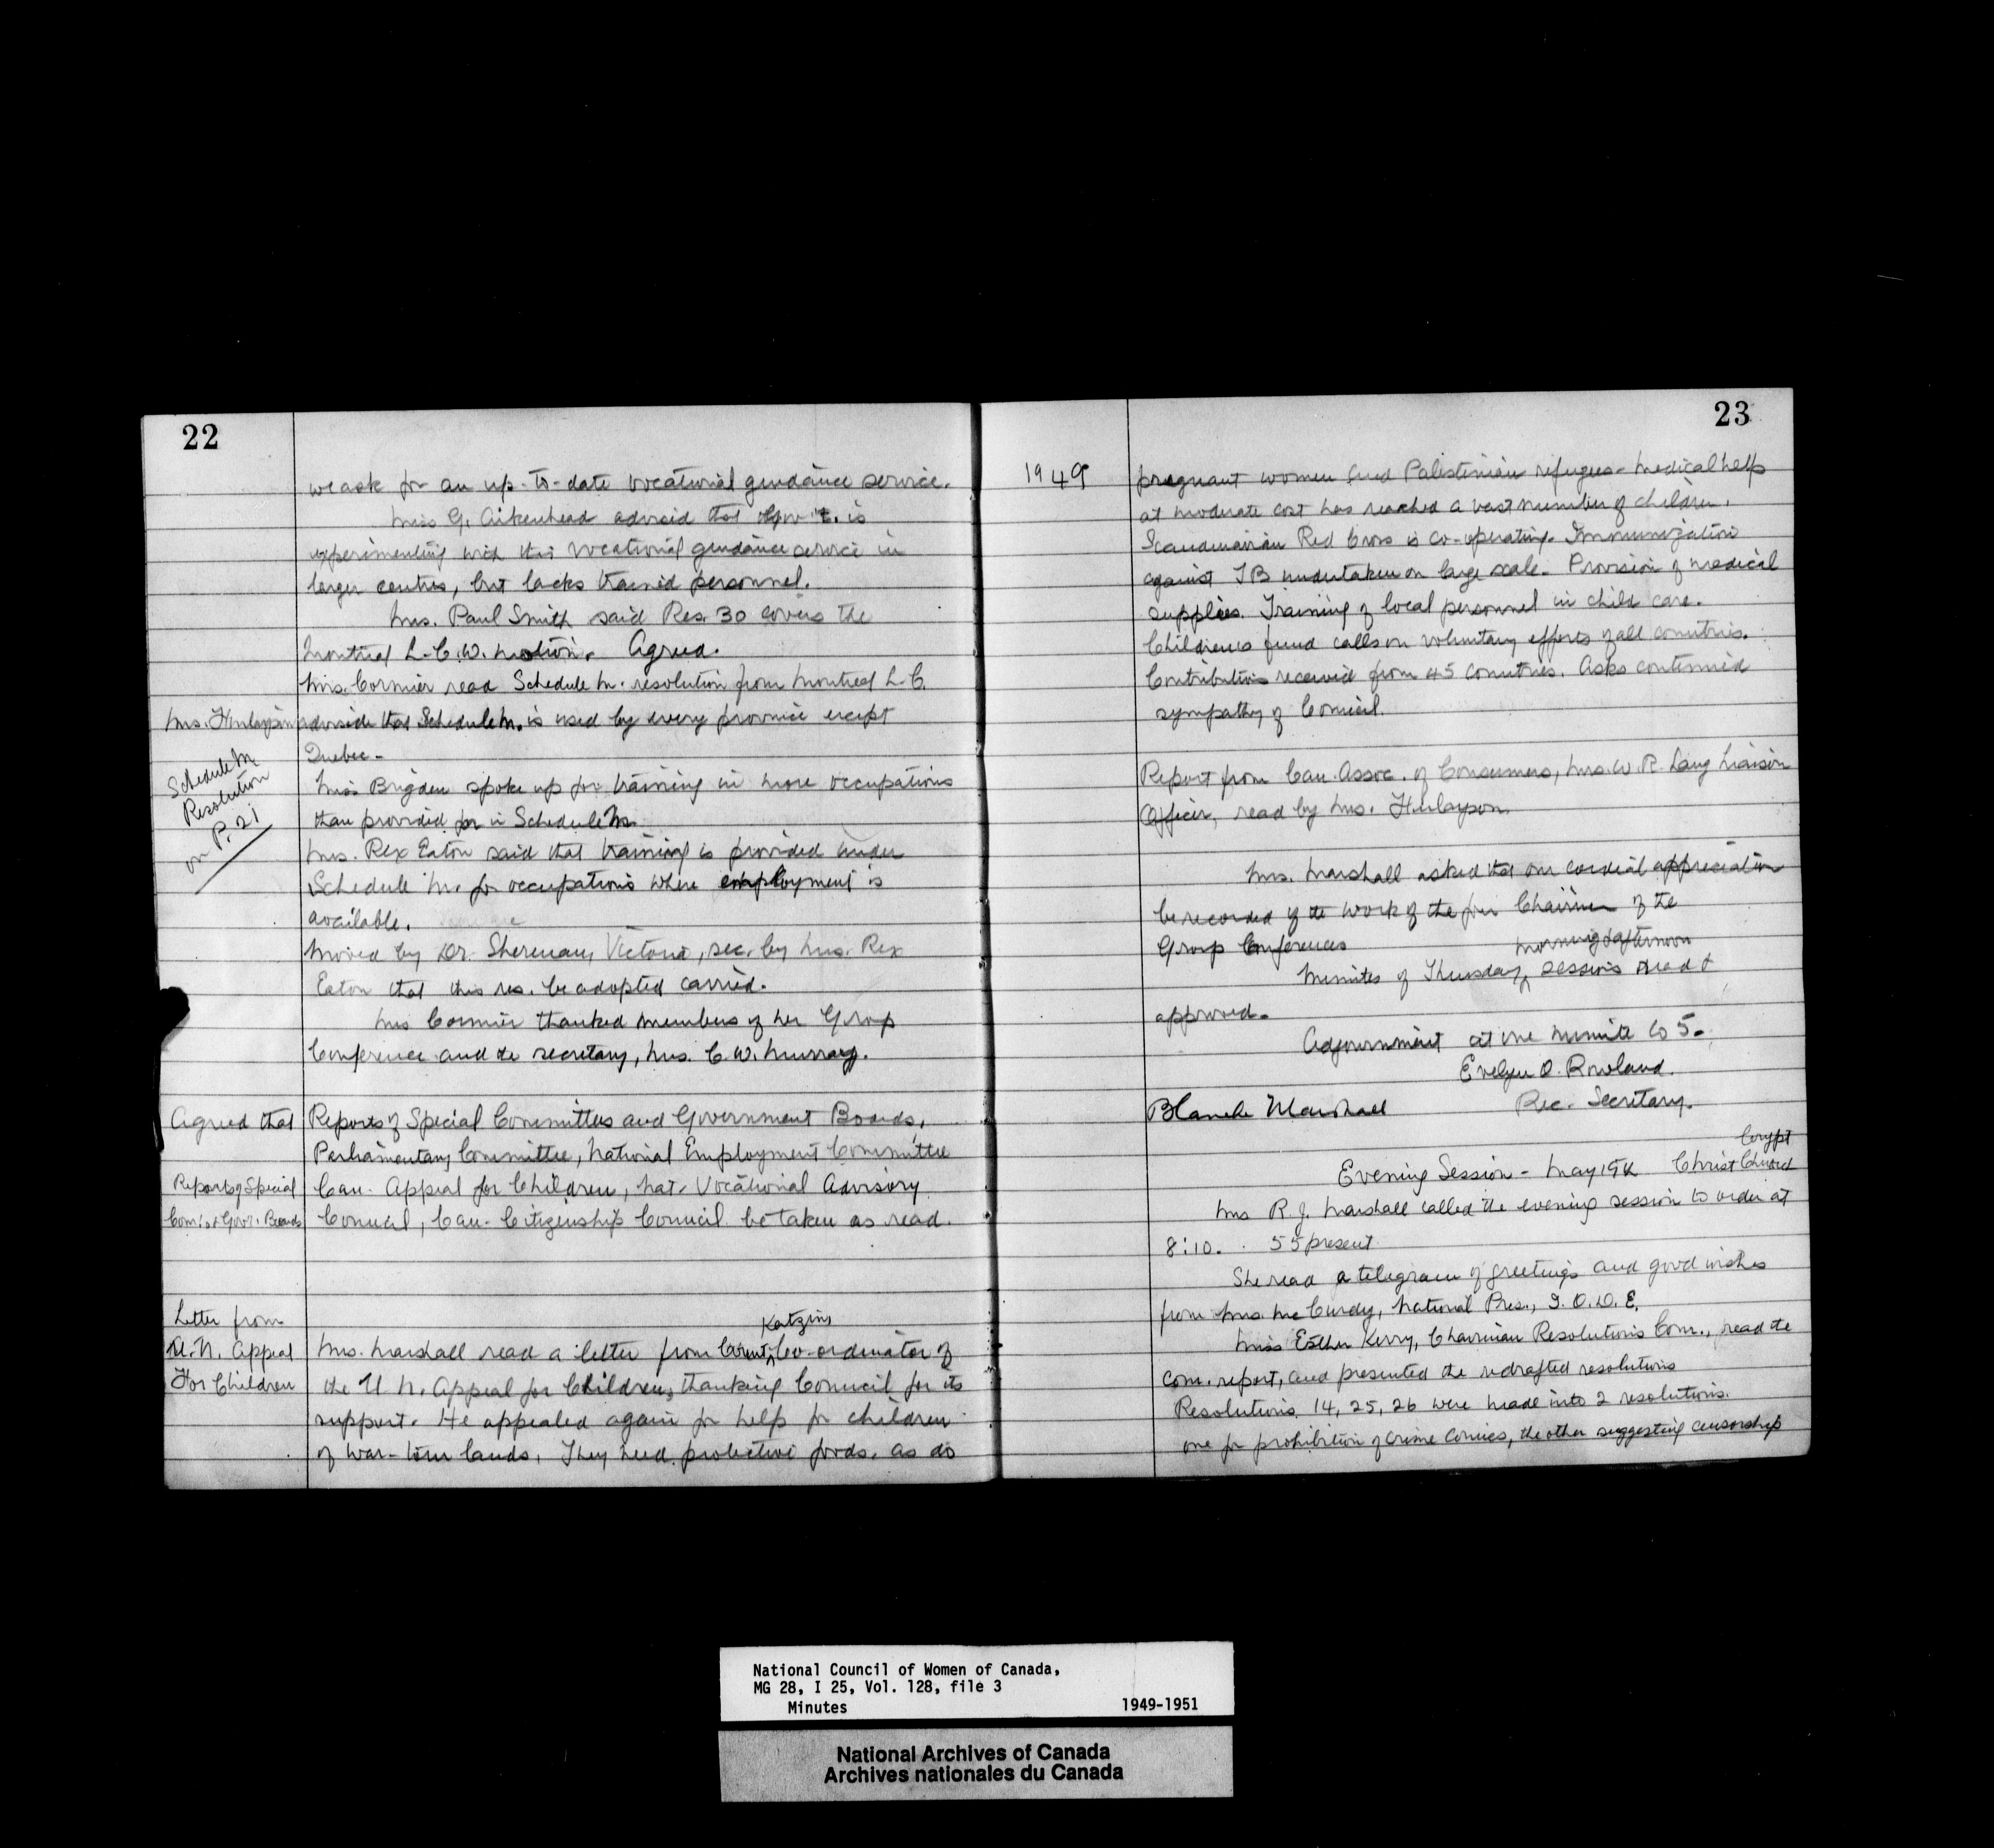 22
we ask for an up-to-date vocational guidance service.
Miss G. Aikenhead advised that Gov't. is
experimenting with this vocational guidance service in
larger centres, but lacks trained personnel.
Mrs. Paul Smith said Res. 30 covers the
Montreal L.C.W. motion. Agreed.
Mrs. Cormier read Schedule M. resolution from Montreal L.C.
Mrs. Finlayson advised that Schedule M. is used by every province except
Quebec.
Schedule M
Resolution
on P. 21
Miss Brigden spoke up for training in more occupations
than provided for in Schedule M.
Mrs. Rex Eaton said that training is provided under
Schedule M. for occupations where employment is
available.
Moved by Dr. Sherman, Victoria, sec. by Mrs. Rex
Eaton that this res. be adopted carried.
Mrs Cormier thanked members of her Group
Conference and the secretary, Mrs. C. W. Murray.
Agreed that Reports of Special Committees and Government Boards,
Parliamentary Committee, National Employment Committee
Reports of Special Can. Appeal for Children, Nat. Vocational Advisory
Com's. & Govt. Boards Council, Can. Citizenship Council be taken as read.
Letter from
Katzin
U.N. Appeal Mrs. Marshall read a letter from Co-ordinator of
For Children the U.N. Appeal for Children, thanking Council for its
support. He appealed again for help for children
of war-torn lands. They need protective foods. as do
23
1949 pregnant women and Palestinian refugees - Medical help
at moderate cost has reached a vast number of children.
Scandinavian Red Cross is co-operating. Immunization
against TB undertaken on large scale. Provision of medical
supplies. Training of local personnel in child care.
Children's fund calls on voluntary efforts of all countries.
Contributions received from 45 countries. Asks continued
sympathy of Council.
Report from Can. Assoc. of Consumers, Mrs. W. R. Lang Liaison
Officer, read by Mrs. Finlayson.
Mrs. Marshall asked that our cordial appreciation
be recorded of the work of the four Chairmen of the
Group Conferences
morning & afternoon
Minutes of Thursday, sessions read &
approved.
Adjournment at one minute to 5.
Evelyn O. Rowland.
Blanche Marshall Rec. Secretary.
Crypt
Evening Session - May 19th Christ Church
Mrs R. J. Marshall called the evening session to order at
8:10. 55 present.
She read a telegram of greetings and good wishes
from Mrs. McCurdy, National Pres., I.O.D.E.
Miss Esther Kerry, Chairman Resolutions Com., read the
com. report, and presented the redrafted resolutions
Resolutions. 14, 25, 26 were made into 2 resolutions.
one for prohibition of crime comics, the other suggesting censorship
National Council of Women of Canada,
MG 28, I 25, Vol. 128, file 3
Minutes 1949-1951
National Archives of Canada
Archives nationales du Canada